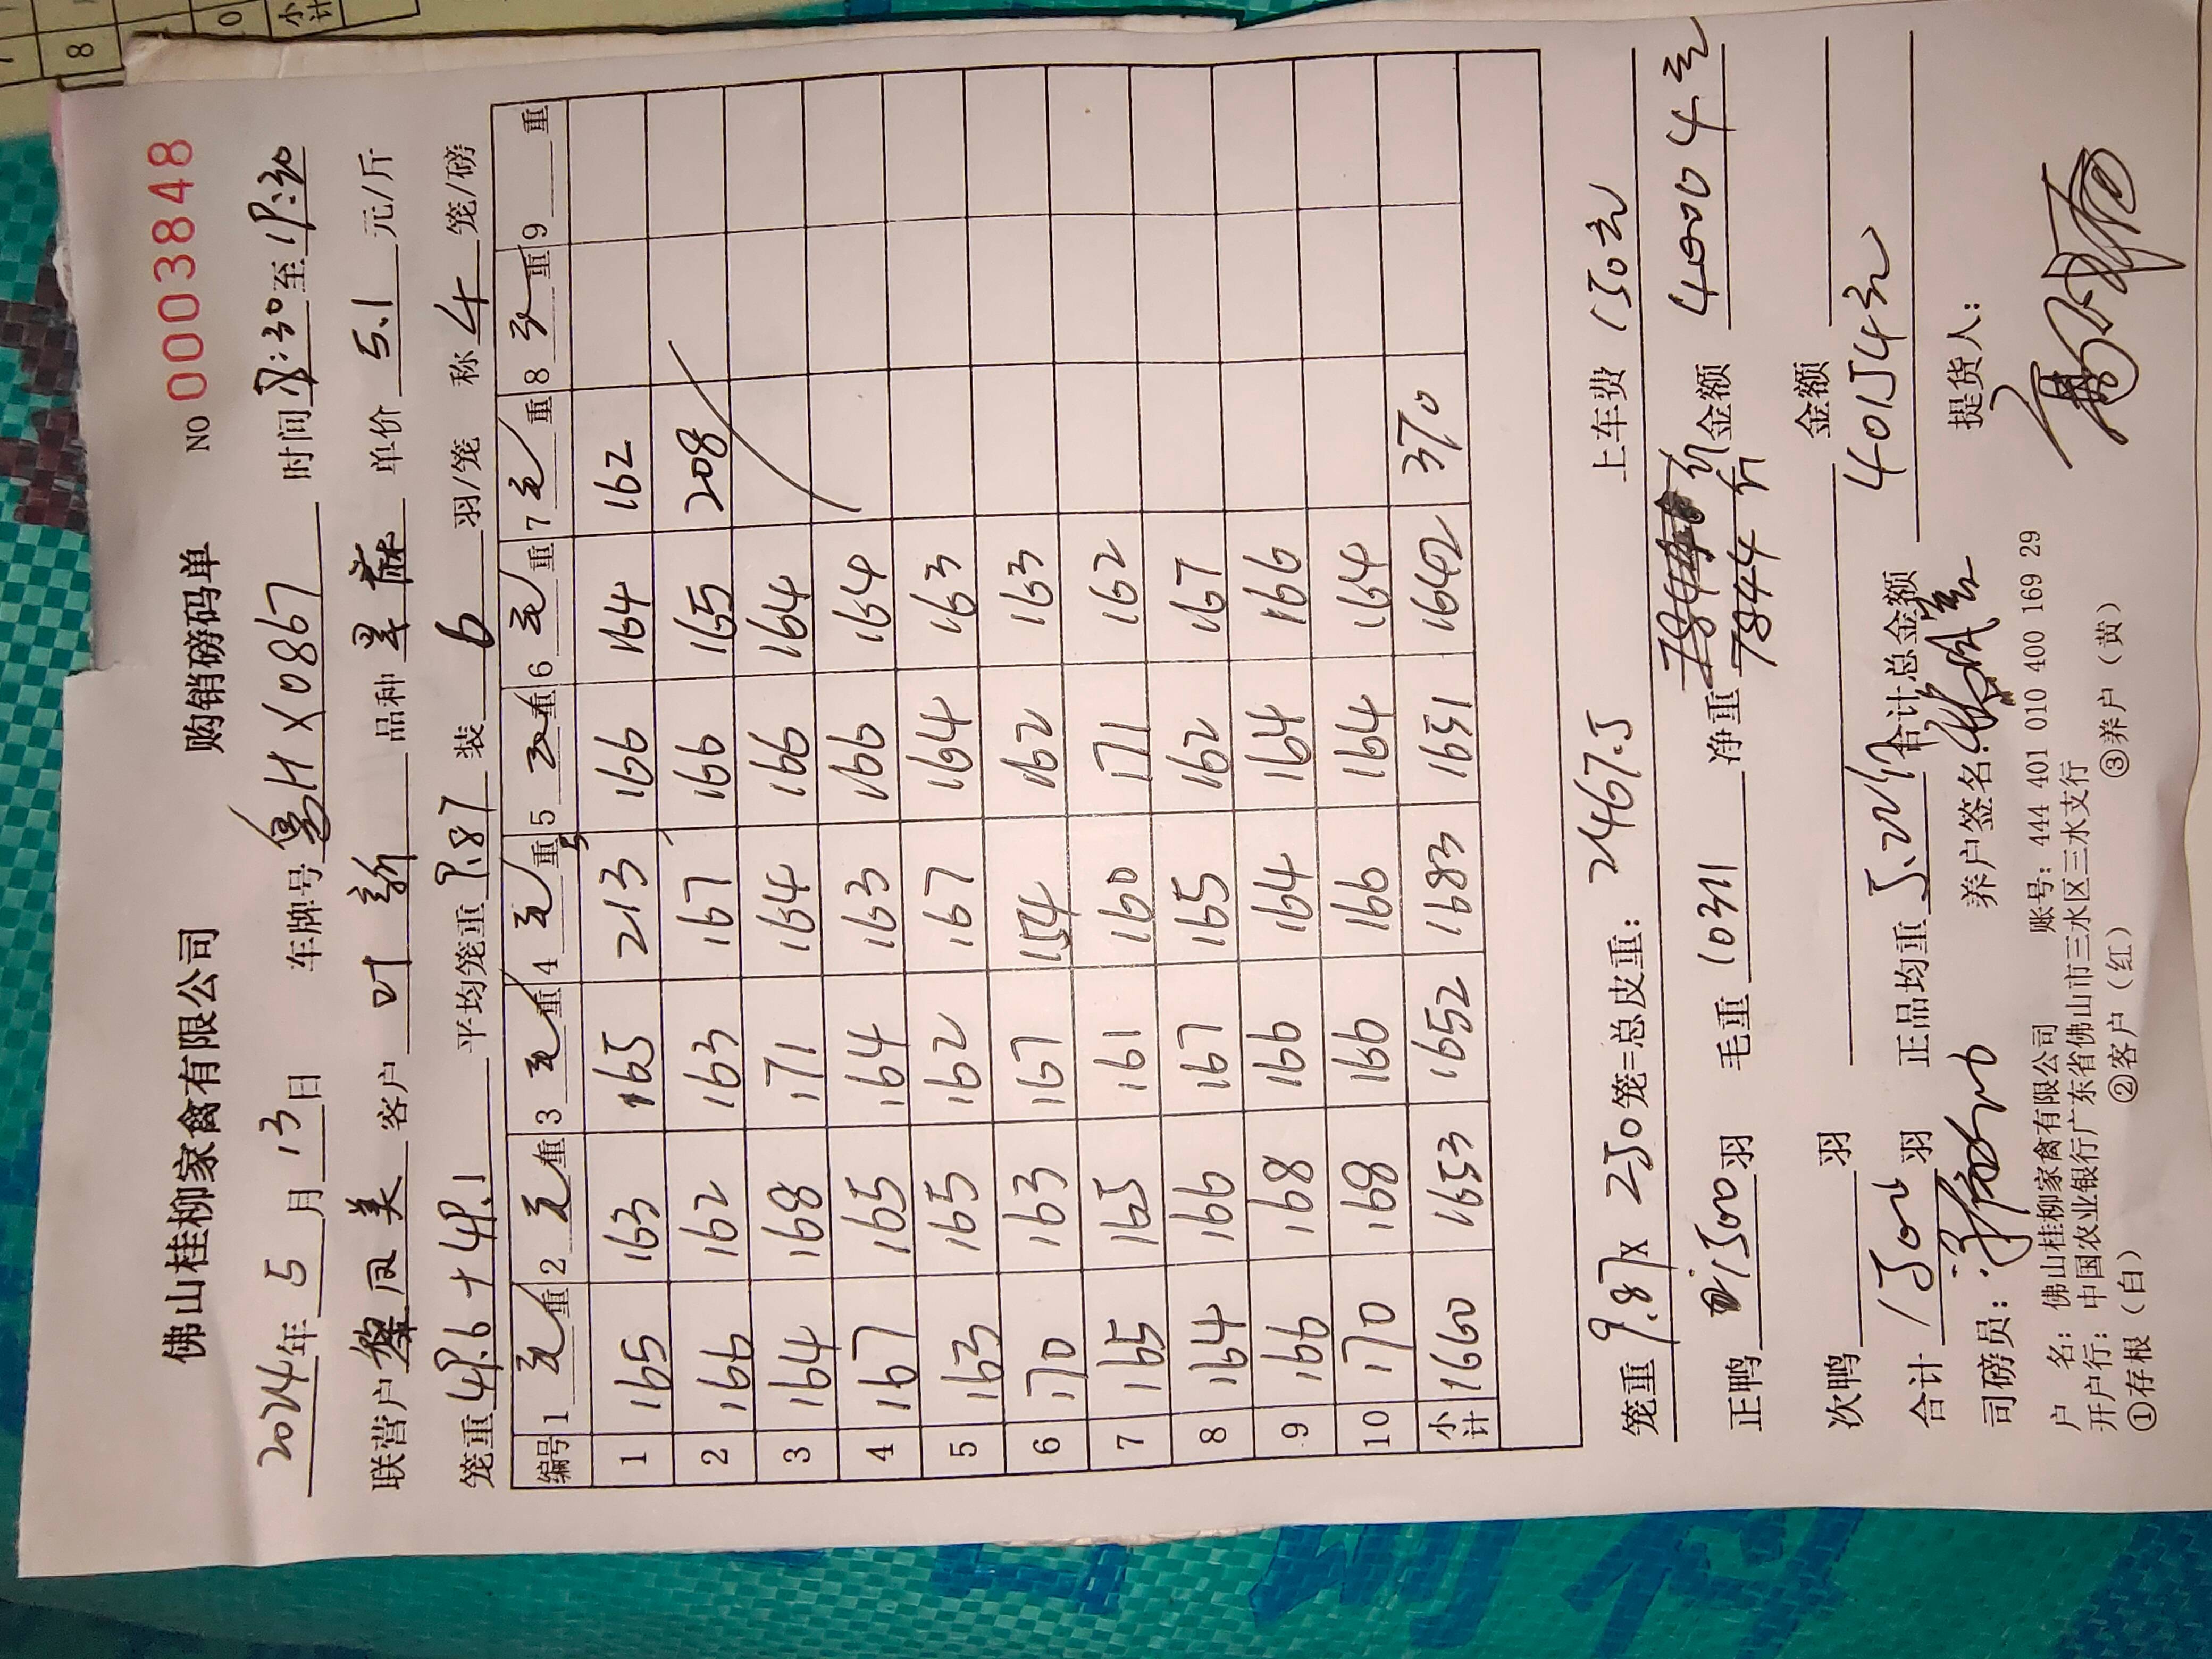 佛山桂柳家禽有限公司 购销磅码单 NO 0003848
2024年5月13日 车牌号 HX0867 时间 8:30至9:30
联营户 黎凤美 客户 叶新 品种 单价 5.1 元/斤
笼重 49.6+49.1 平均笼重 9.87 装 6 羽/笼 称 4 笼/磅
编号 1 毛重 2 毛重 3 毛重 4 毛重 5 毛重 6 毛重 7 毛重 8 重 9 重
1 165 163 165 213 166 164 162
2 166 162 163 167 166 165 208
3 164 168 171 164 166 164
4 167 165 164 163 166 164
5 163 165 162 167 164 163
6 170 163 167 154 162 163
7 165 165 161 160 171 162
8 164 166 167 165 162 167
9 166 168 166 164 164 166
10 170 168 166 166 164 164
小计 1660 1653 1652 1683 1651 1642 370
笼重 9.87 x 250 笼=总皮重: 2467.5 上车费 150元
正鸭 1500 羽 毛重 10311 净重 7844 斤 金额 40004元
次鸭 羽 金额
合计 1502 羽 正品均重 5.22斤 合计总金额 40154元
司磅员: 养户签名: 提货人:
户 名: 佛山桂柳家禽有限公司 账号: 444 401 010 400 169 29
开户行: 中国农业银行广东省佛山市三水区三水支行
①存根（白） ②客户（红） ③养户（黄）
8
小计